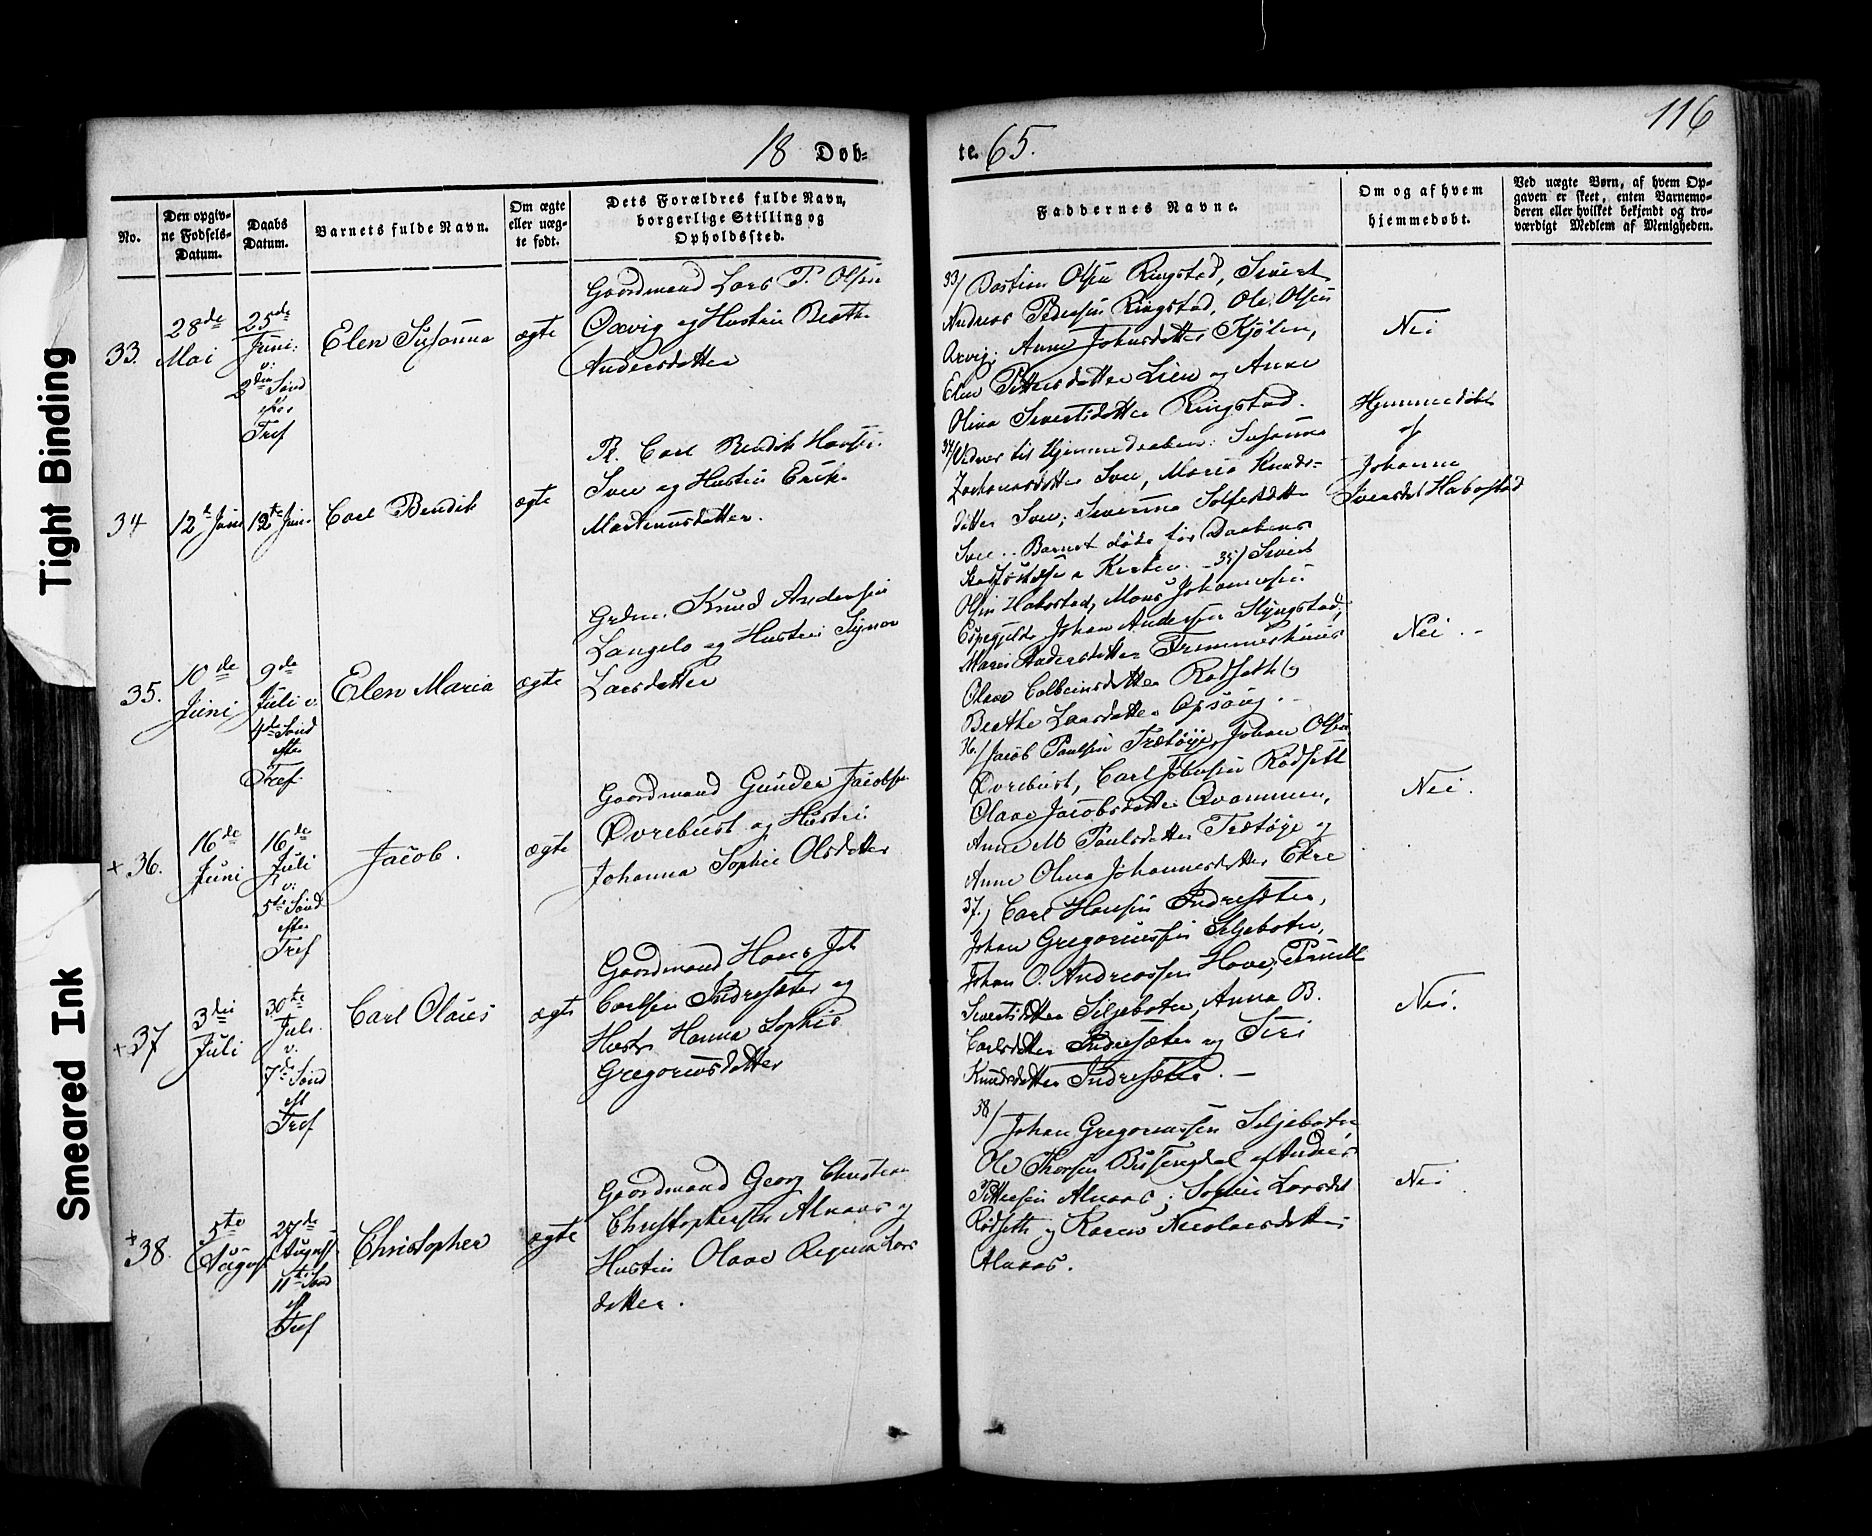 116
18 Døb-
te. 65.
No.
Den opgiv-
ne Fødsels-
Datum.
Daabs
Datum.
Barnets fulde Navn.
Om ægte
eller uæg-
te født.
Dets Forældres fulde Navn,
borgerlige Stilling og
Opholdssted.
Faddernes Navne.
Om og af hvem
hjemmedøbt.
Ved uægte Børn, af hvem Op-
gaven er skeet, enten Barnemo-
deren eller hvilket bekjendt og tro-
værdigt Medlem af Menigheden.
33.
28de
Mai
25de
Juni
v.
2den Sønd
efter
Tref
Elen Susanna
ægte
Gaardmand Lars P. Olsen
Oxvig og Hustru Berthe
Andersdatter
33/ Bastian Olsen Ringstad, Sivert
Andreas Pedersen Ringstad, Ole Olsen
Oxvig; Anne Johnsdatter Kjølen,
Elen Pettersdatter Lien og Anne
Olina Sivertsdatter Ringstad.
Nei
34
12te Juni
12te Juni
Carl Bendik
ægte
P. Carl Bendik Hansen
Sve og Hustru Erik
Martinusdatter.
34/ Vidner til Hjemmedaaben: Susanna
Zachariasdatter Sve, Maria Knuds-
datter Sve, Severina
Sve.. Barnet døde før Daabens
Stadfæstelse i Kirken. - 35/ Sivert
Hjemmedøbt
af
Johanne
Habostad
35.
10de
Juni
9de
Juli v.
4de Sønd
efter
Tref.
Elen Maria
ægte
Grdm. Knud Andersen
Langelo og Hustru Synov
Larsdatter
Olsen Habostad, Mons Johannesen
Johan Andersen
Maren Andersdatter
Olave Colbeinsdatter Rødseth og
Berthe Larsdatter Opsavig.
Nei. -
+36.
16de
Juni
16de
Juli
v.
5te Sønd
efter
Tref
Jacob.
ægte
Gaardmand Gunder Jacobsen
Øvrebust og Hustru
Johanna Sophie Olsdatter
36./ Jacob Paulsen Trætøye, Johan Olsen
Øvrebust, Carl Johnsen Rødseth
Olave Jacobsdatter Qvammen,
Anne M Paulsdatter Trætøye og
Anne Olina Johannesdatter Ekre
Nei.
+37
3die
Juli
30te
Juli.
v.
7de Sønd
eft
Tref
Carl Olaus
ægte
Gaardmand Hans Joh
Carlsen Indresæter og
Hustr Hanna Sophie
Gregoriusdatter
37./ Carl Hansen Indresæter,
Johan Gregoriussen Siljebotn,
Johan O. Andreassen Hove,
Sivertsdatter Siljebotn, Anna B.
Carlsdatter Indresæter og Siri
Knudsdatter Indresæter. -
Nei.
+38.
5te
August
27de
August
11te Sønd
eft
Tref
Christopher
ægte
Gaardmand Georg Christian
Christophersen Alnaas og
Hustru Olave Regina Lars
datter.
38/ Johan Gregoriussen Siljebotn
Ole Thorsen
Pettersen Alnaas, Sophie Larsdat
Rødseth og Karen Nicolaisdatter
Alnaas.
Nei
Tight Binding
Smeared Ink